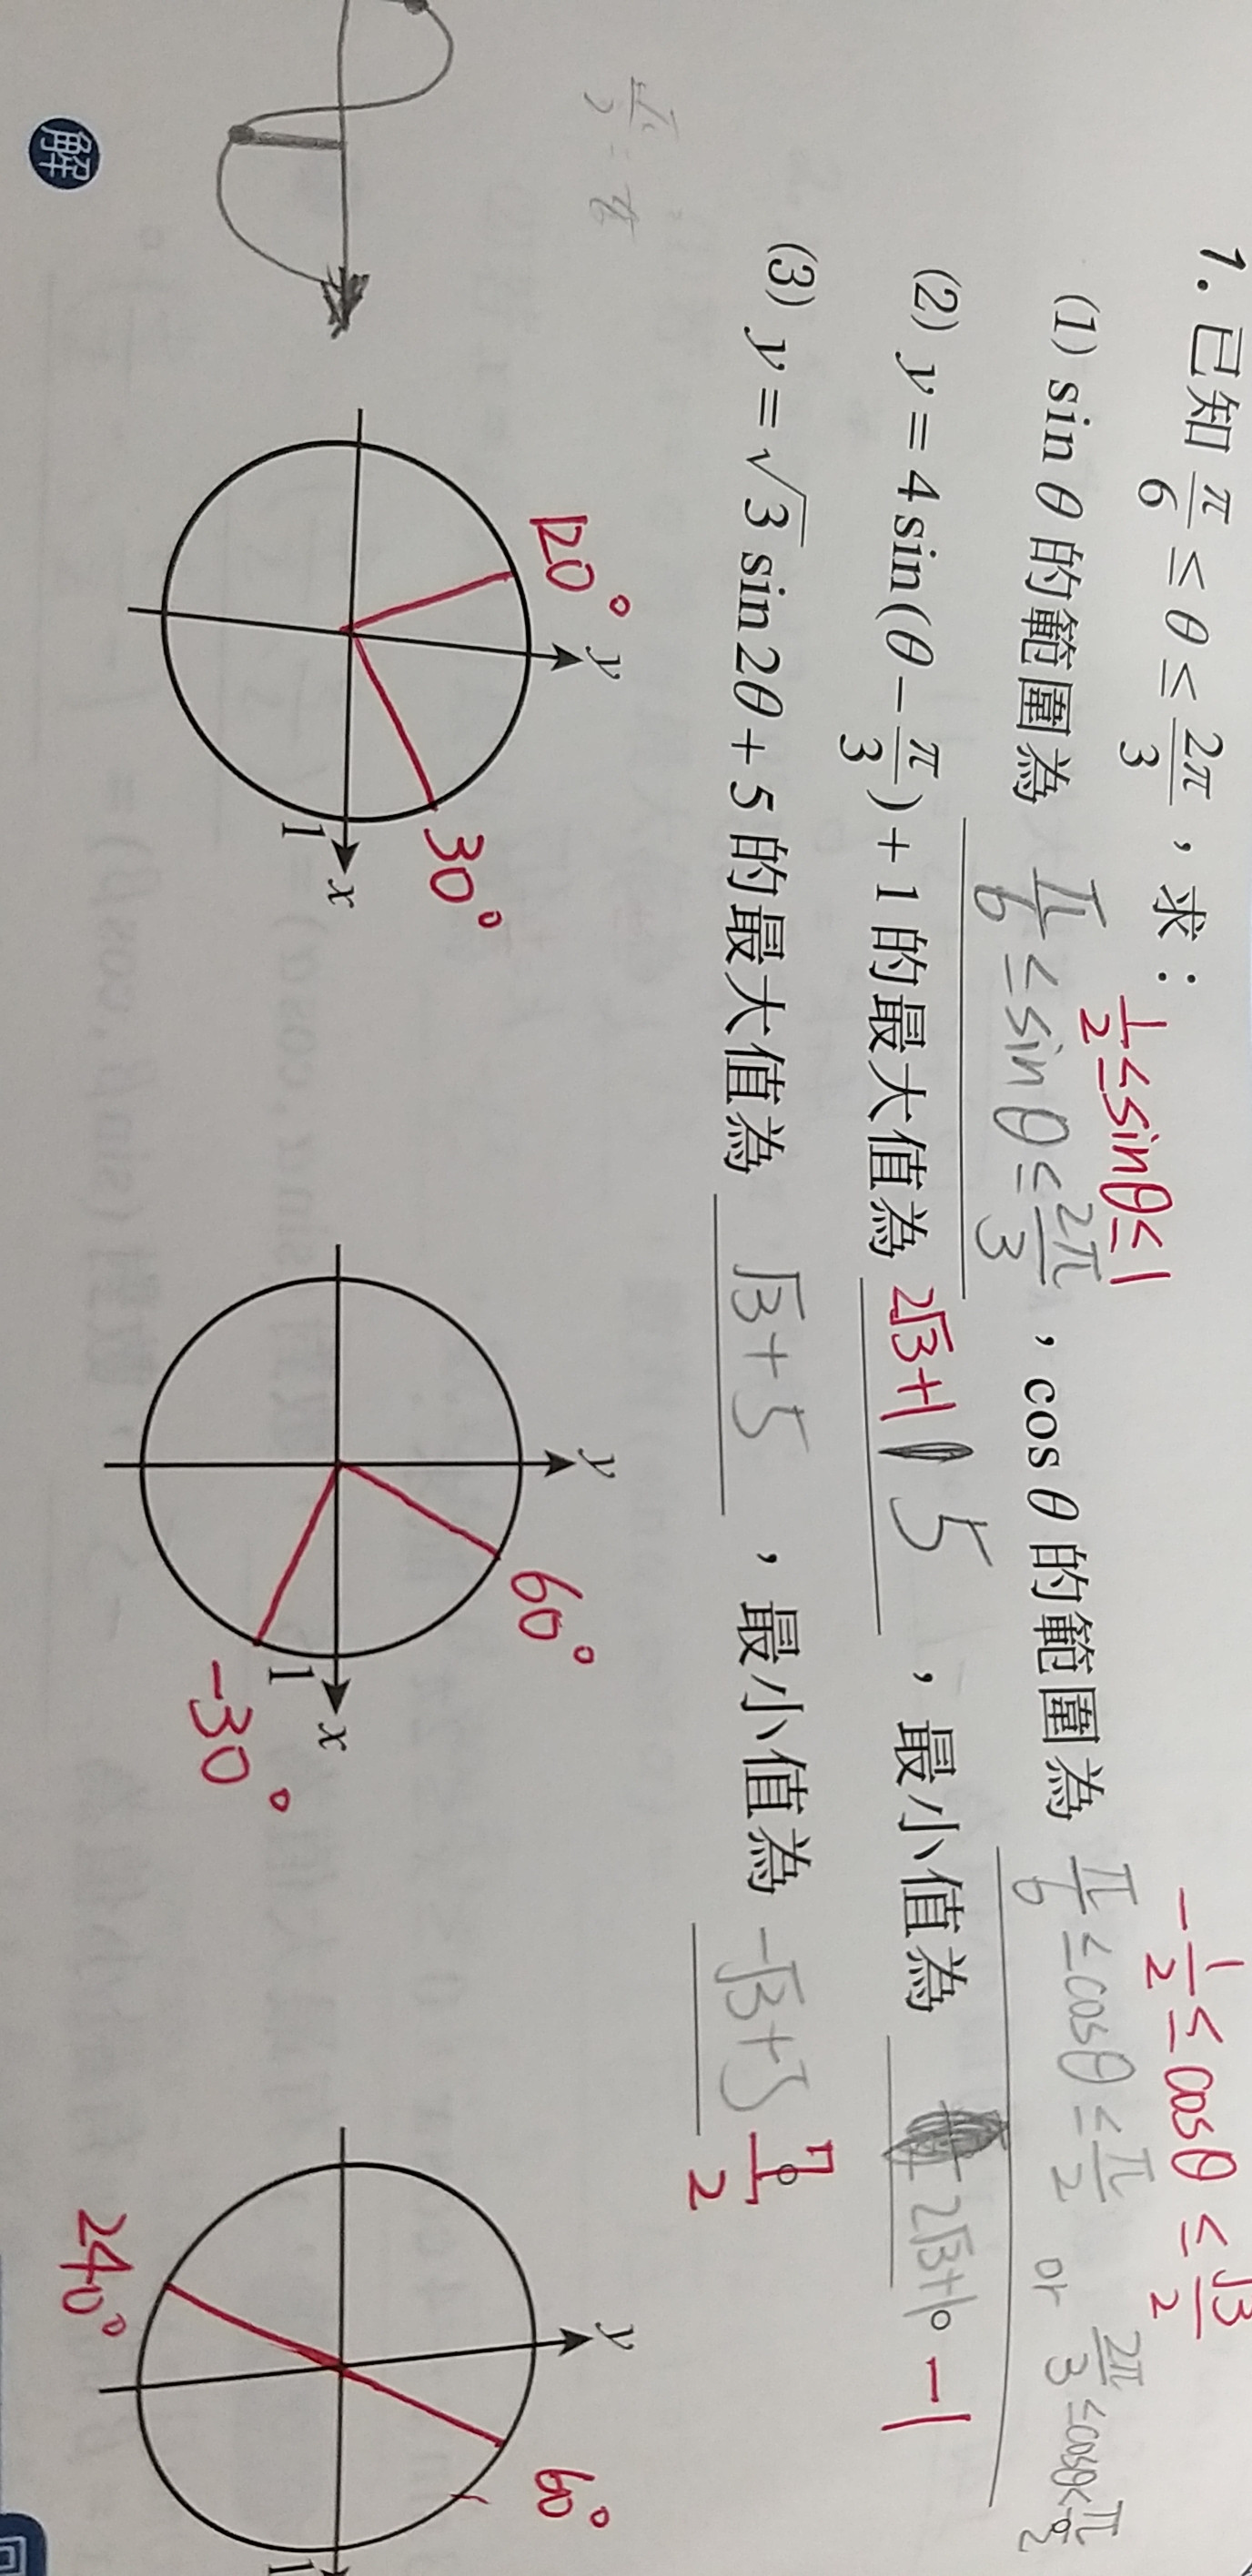 1. 已知 π/6 ≤ θ ≤ 2π/3，求：
1/2 ≤ sinθ ≤ 1
-1/2 ≤ cosθ ≤ √3/2
(1) sin θ 的範圍為 π/6 ≤ sin θ ≤ 2π/3，cos θ 的範圍為 π/6 ≤ cosθ ≤ π/2 or 2π/3 ≤ cosθ < π/2。
(2) y = 4 sin(θ - π/3) + 1 的最大值為 2√3+1 5，最小值為 2√3+1。 -1
(3) y = √3 sin 2θ + 5 的最大值為 √3+5，最小值為 -√3+5。 7/2
解
120°
y
30°
1
x
y
60°
-30°
1
x
y
60°
240°
1